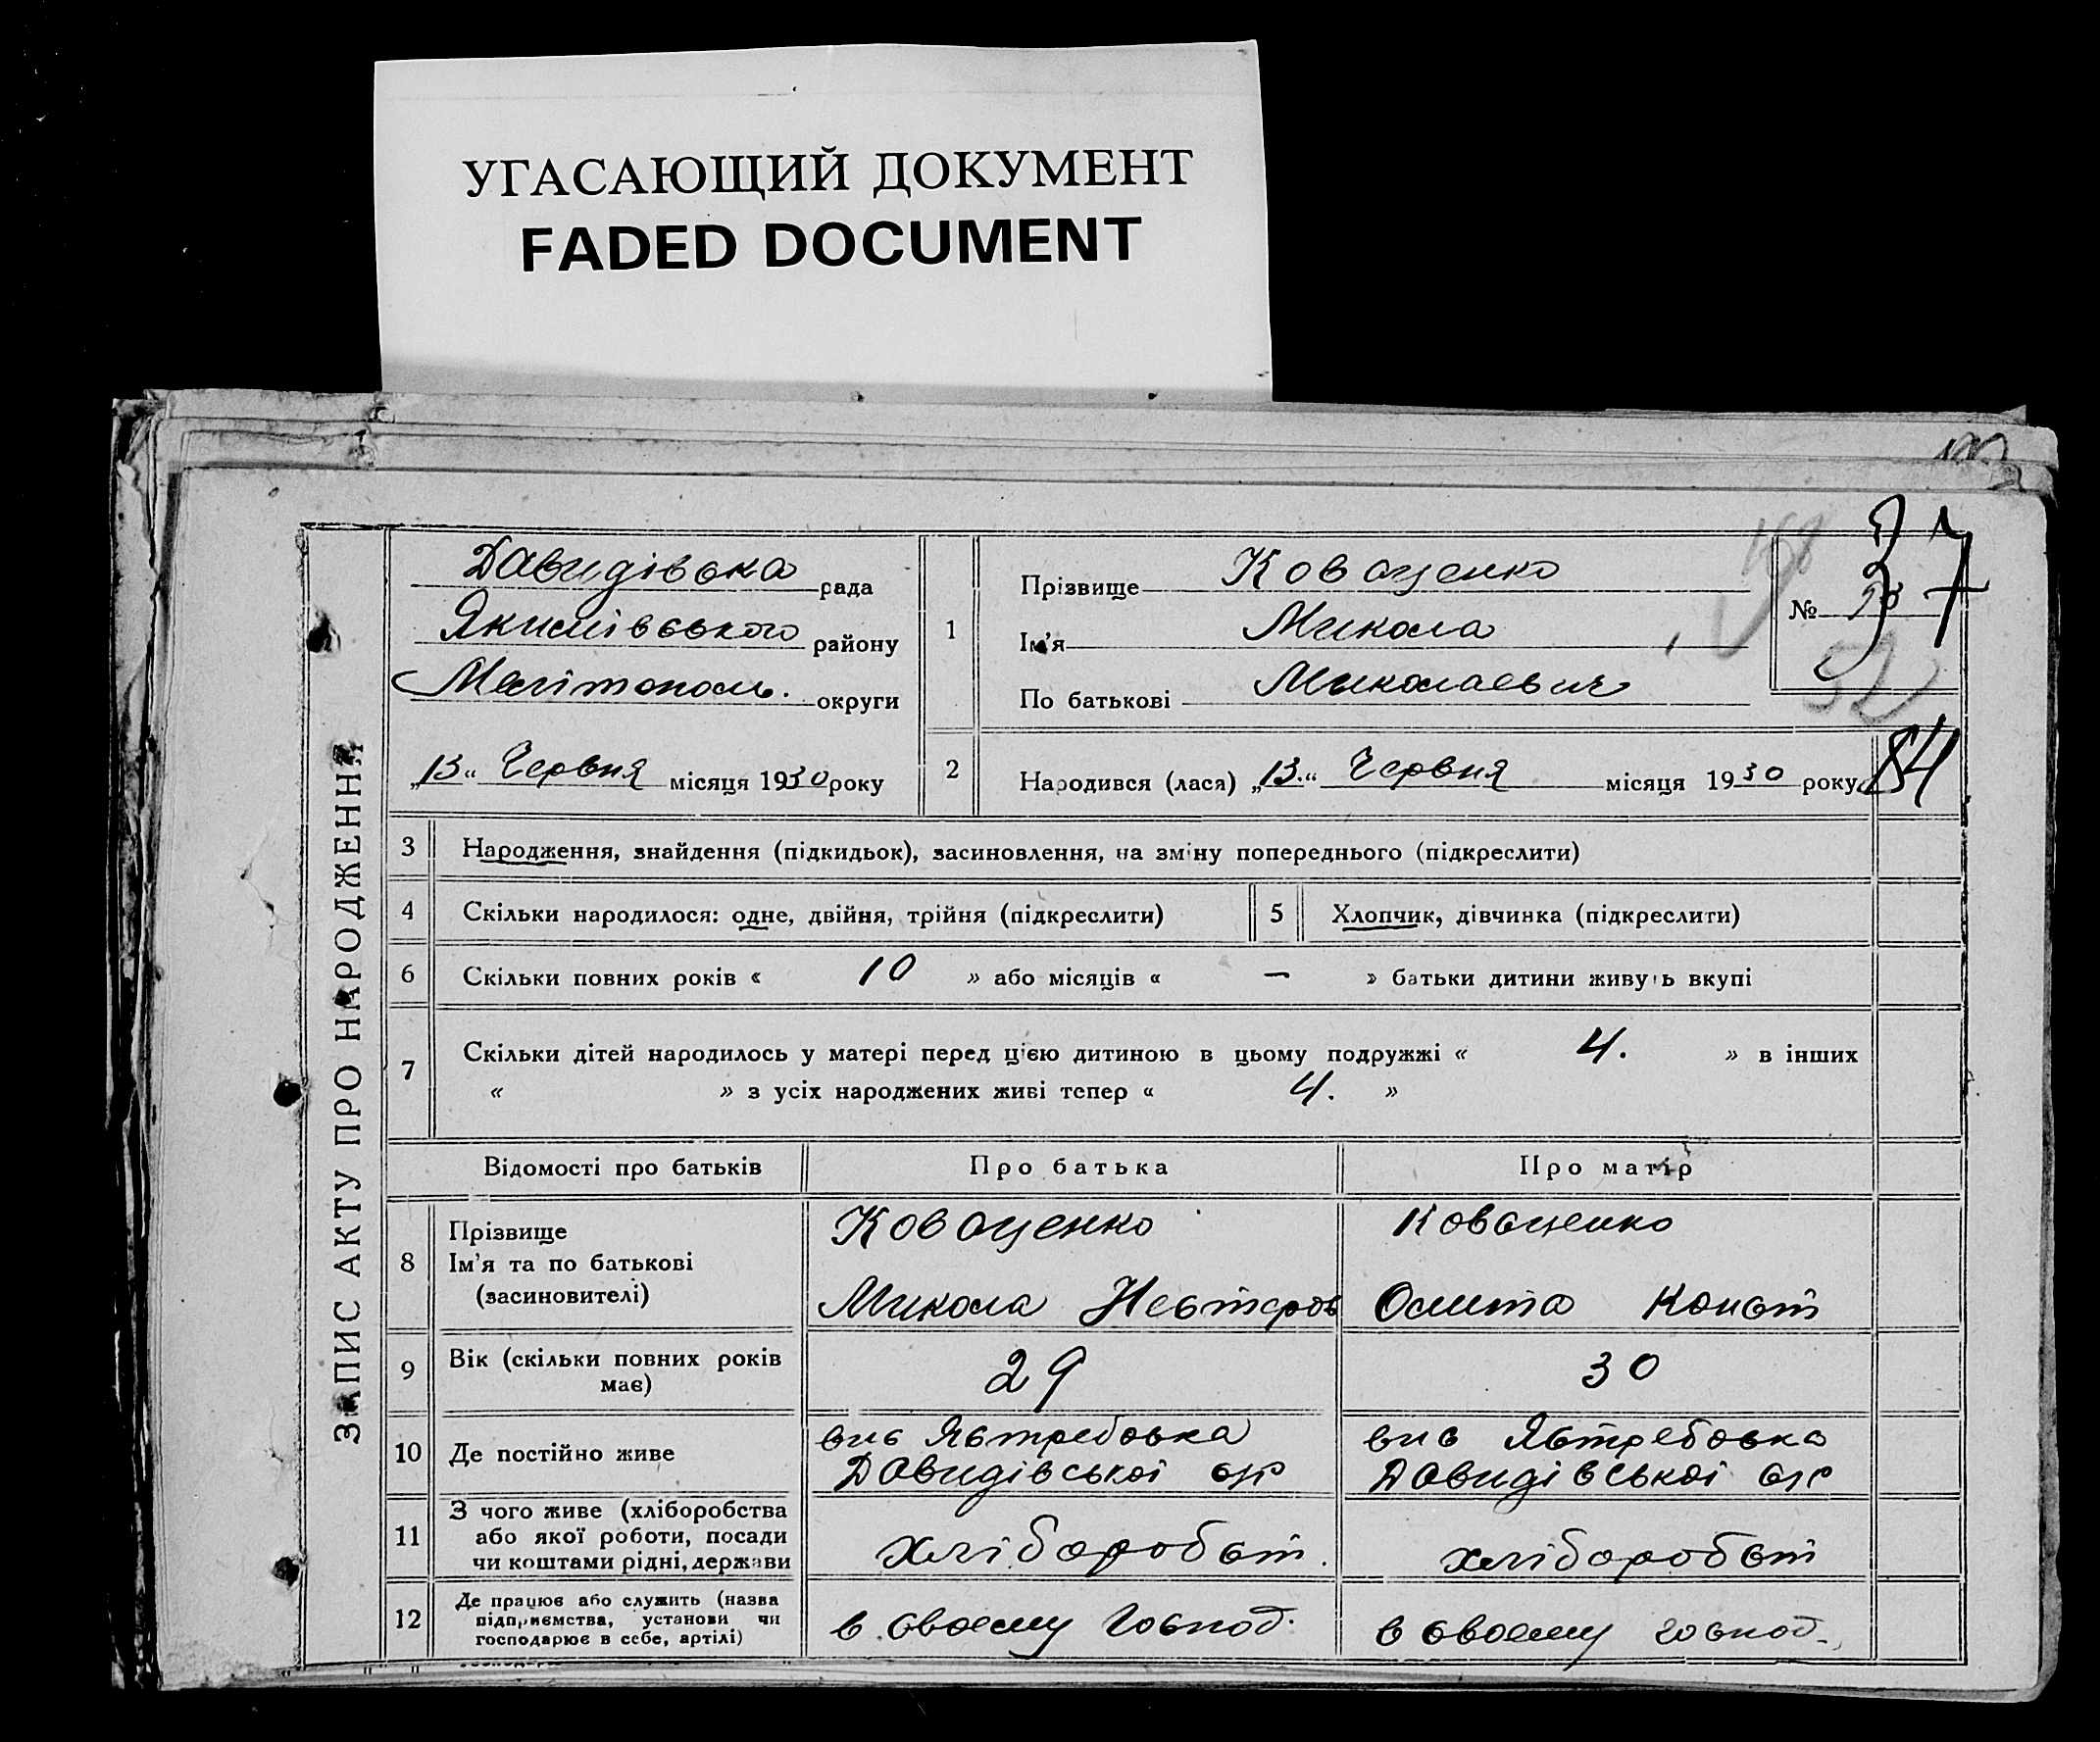 УГАСАЮЩИЙ ДОКУМЕНТ
FADED DOCUMENT
ЗАПИС АКТУ ПРО НАРОДЖЕННЯ
Давидівська рада
Якимівського району
Мелітополь. округи
„13“ Червня місяця 1930 року
1
Прізвище Коваценко
Ім'я Микола
По батькові Миколаевич
№
37
52
84
2
Народився (лася) „13.“ Червня місяця 1930 року
3 Народження, знайдення (підкидьок), засиновлення, на зміну попереднього (підкреслити)
4 Скільки народилося: одне, двійня, трійня (підкреслити)
5 Хлопчик, дівчинка (підкреслити)
6 Скільки повних років « 10 » або місяців « — » батьки дитини живуть вкупі
7 Скільки дітей народилось у матері перед цією дитиною в цьому подружжі « 4. » в інших
« » з усіх народжених живі тепер « 4. »
Відомості про батьків Про батька Про матір
8 Прізвище
Ім'я та по батькові
(засиновителі)
Коваценко
Микола Нестеров
Коваценко
Конст
9 Вік (скільки повних років
має)
29
30
10 Де постійно живе
вис Ястребовка
Давидівської с/р
вис Ястребовка
Давидівської с/р
11 З чого живе (хліборобства
або якої роботи, посади
чи коштами рідні, держави
хліборобст.
хліборобст
12 Де працює або служить (назва
підприємства, установи чи
господарює в себе, артілі)
в своему господ.
в своему господ.